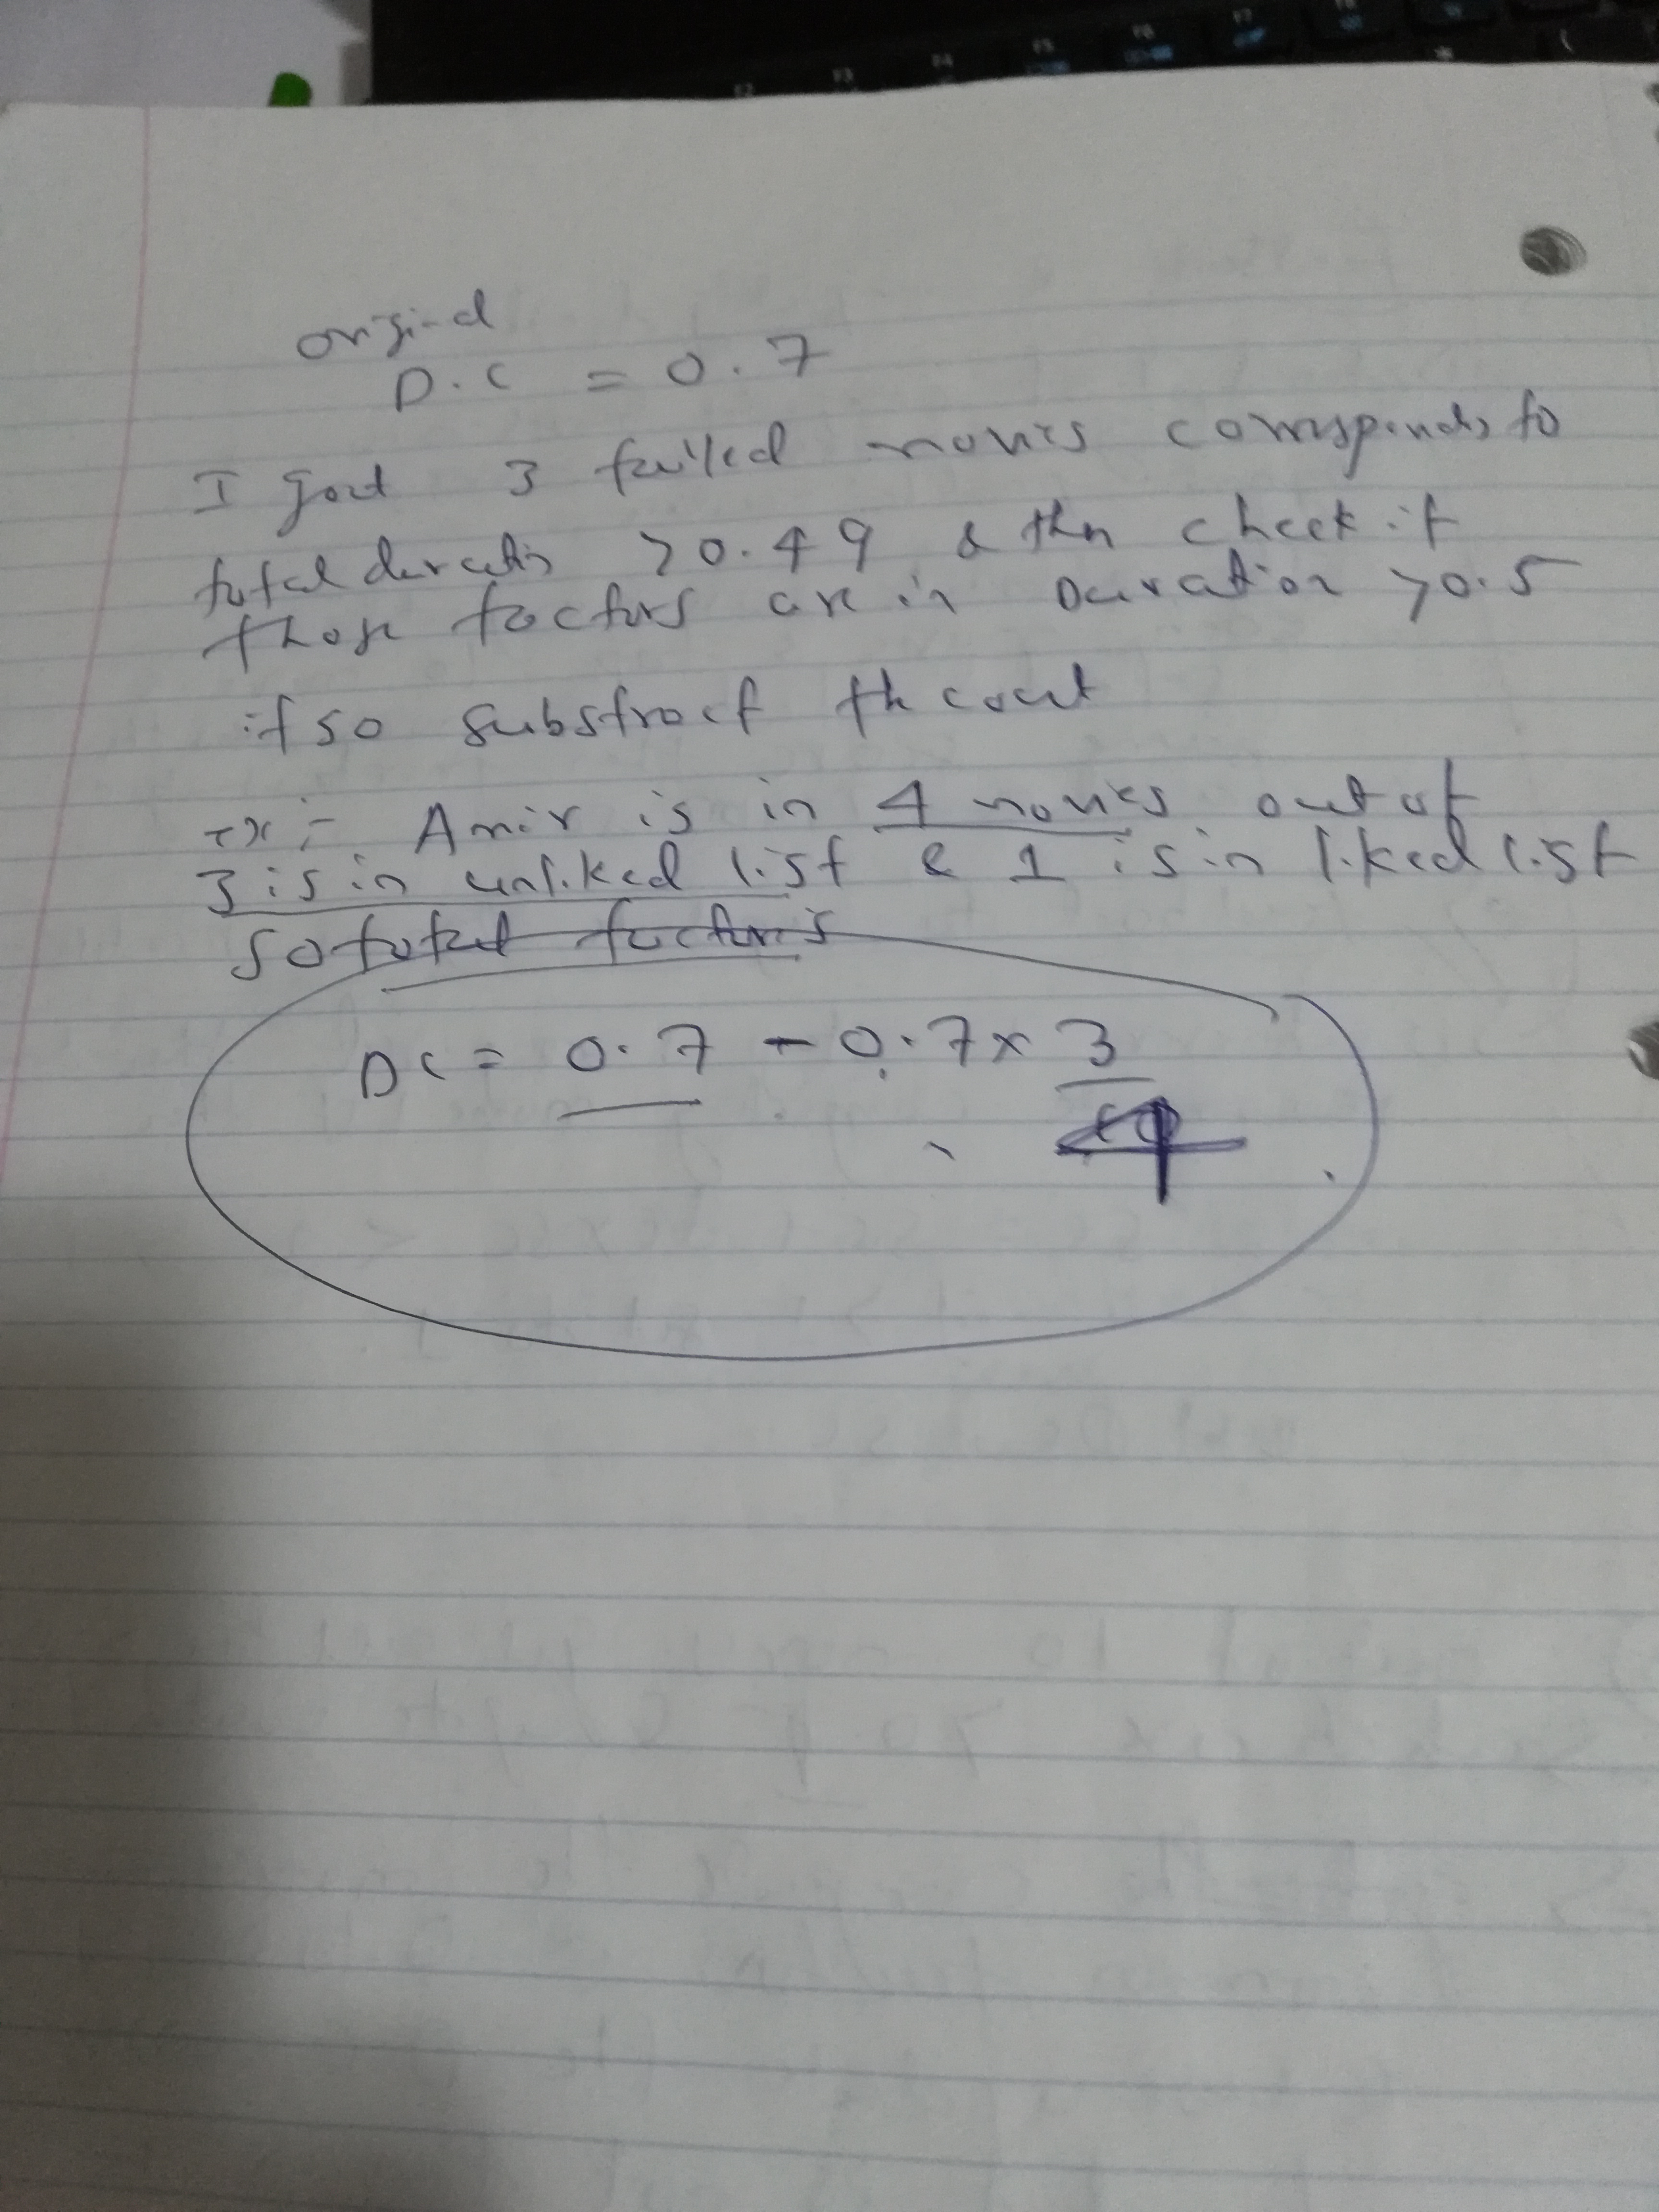 original
D.C = 0.7
I got 3 failed movies corresponds to
total duration >0.49 & then check if
those factors are in Duration >0.5
if so substract the count
ex:- Amir is in 4 movies out of
3 is in unliked list & 1 is in liked list
So total factors
DC = 0.7 - 0.7 x 3
4